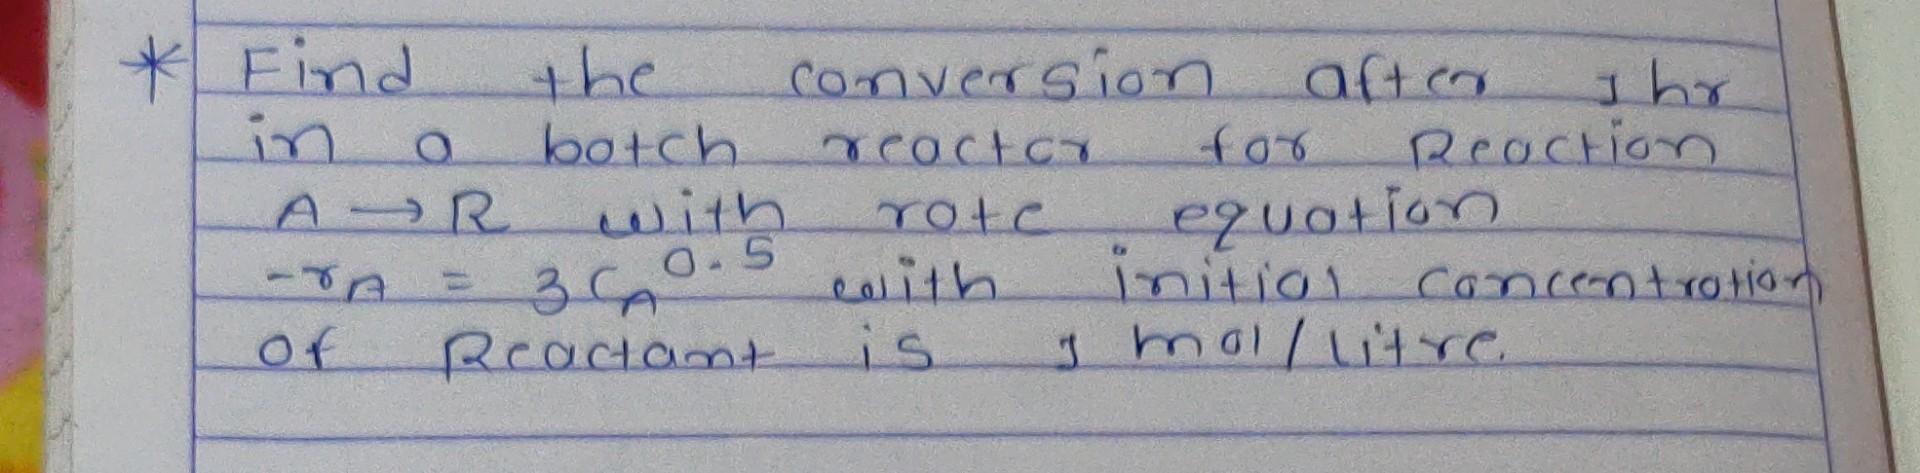 * Find the conversion after 1 hr
in a batch reactor for Reaction
A → R with rate equation
-rA = 3 CA^0.5 with initial concentration
of Reactant is 1 mol/litre.